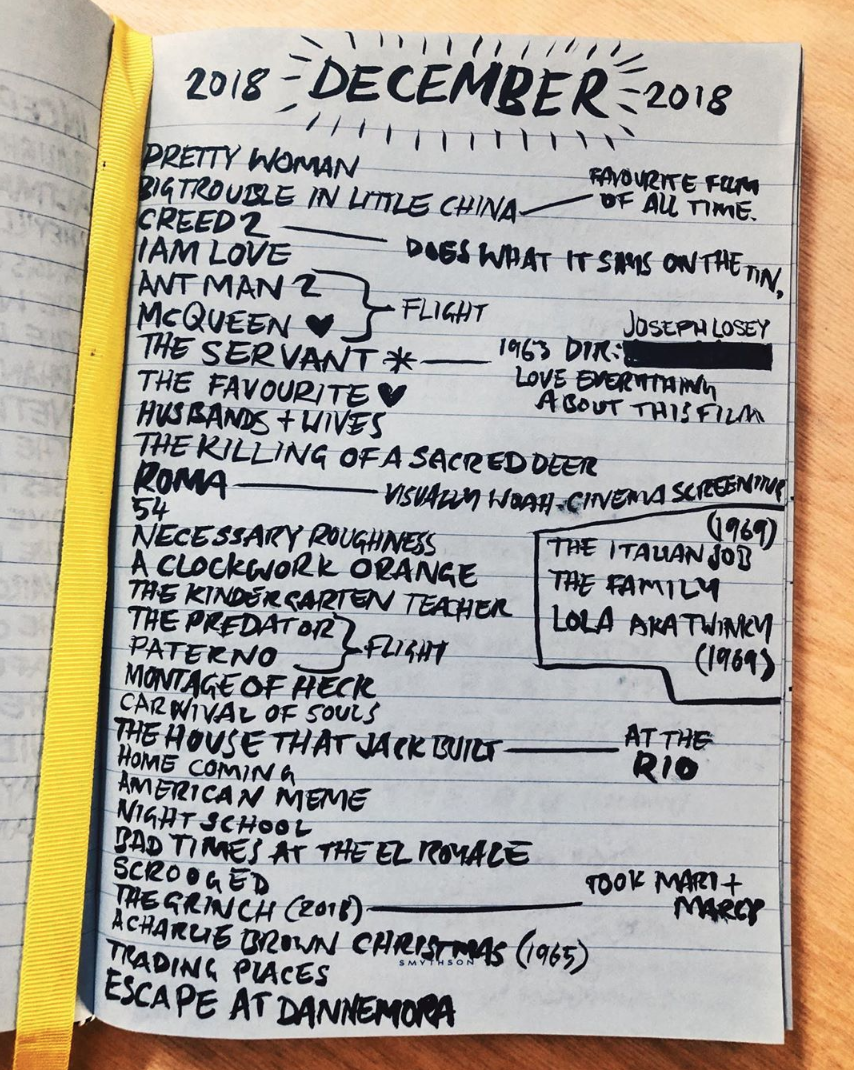 2018 DECEMBER 2018
PRETTY WOMAN
BIG TROUBLE IN LITTLE CHINA
FAVOURITE FILM
OF ALL TIME.
CREED 2
DOES WHAT IT SAYS ON THE TIN,
I AM LOVE
ANT MAN 2
McQUEEN ♥
FLIGHT
THE SERVANT *
1963 DIR:
JOSEPH LOSEY
LOVE EVERYTHING
ABOUT THIS FILM
THE FAVOURITE ♥
HUSBANDS + WIVES
THE KILLING OF A SACRED DEER
ROMA
VISUALLY WOAH - CINEMA SCREENING
54
NECESSARY ROUGHNESS
A CLOCKWORK ORANGE
THE KINDERGARTEN TEACHER
(1969)
THE ITALIAN JOB
THE FAMILY
LOLA AKA TWINKY
(1969)
THE PREDATOR
PATERNO
FLIGHT
MONTAGE OF HECK
CARNIVAL OF SOULS
THE HOUSE THAT JACK BUILT
AT THE
RIO
HOME COMING
AMERICAN MEME
NIGHT SCHOOL
BAD TIMES AT THE EL ROYALE
SCROOGED
THE GRINCH (2018)
TOOK MARI +
A CHARLIE BROWN CHRISTMAS (1965)
SMYTHSON
TRADING PLACES
ESCAPE AT DANNEMORA